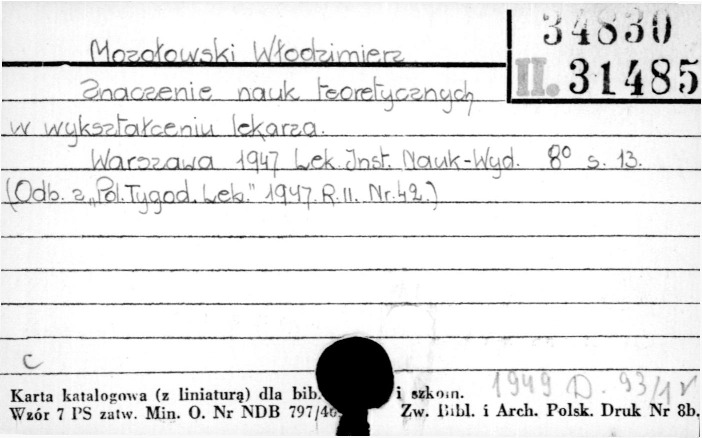 34830
Mozołowski Włodzimierz
II. 31485
Znaczenie nauk teoretycznych
w wykształceniu lekarza.
Warszawa 1947 Lek. Inst. Nauk-Wyd. 8° s. 13.
(Odb. z „Pol. Tygod. Lek." 1947. R. II. Nr. 42.)
c
1949 D. 93/
Karta katalogowa (z liniaturą) dla bibl. i szkoln.
Wzór 7 PS zatw. Min. O. Nr NDB 797/46 Zw. Bibl. i Arch. Polsk. Druk Nr 8b.